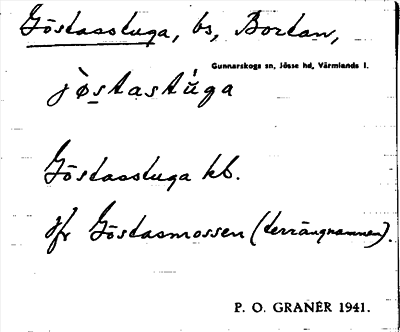 Göstasstuga, bs, Bortan,
Gunnarskogs sn, Jösse hd, Värmlands l.
jøstastùga
Göstasstuga kb.
jfr Göstasmossen (terrängnamnen).
P. O. GRANÉR 1941.